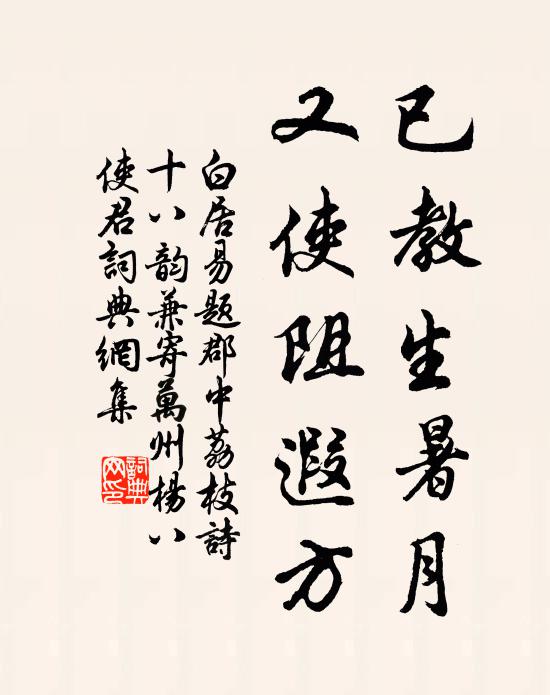 已教生暑月
又使阻遐方
白居易題郡中荔枝詩
十八韵兼寄萬州楊八
使君詞典網集
詞典
网印